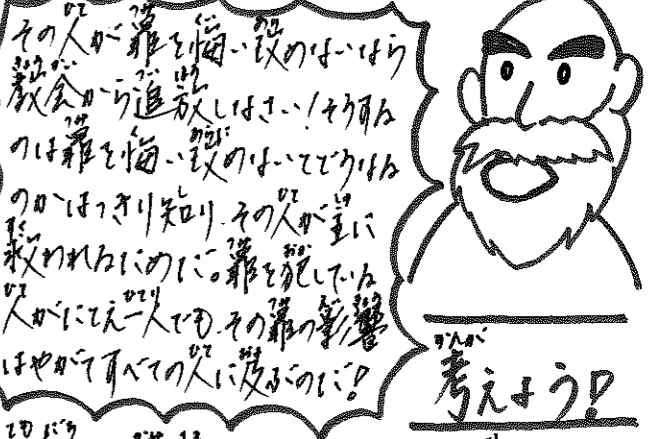 その人が罪を悔い改めないなら
教会から追放しなさい！そうする
のは罪を悔い改めないとどうなる
のかはっきり知り、その人が主に
救われるためだ。罪を犯している
人がたとえ一人でも、その罪の影響
はやがてすべての人に及ぶのだ！
考えよう！？